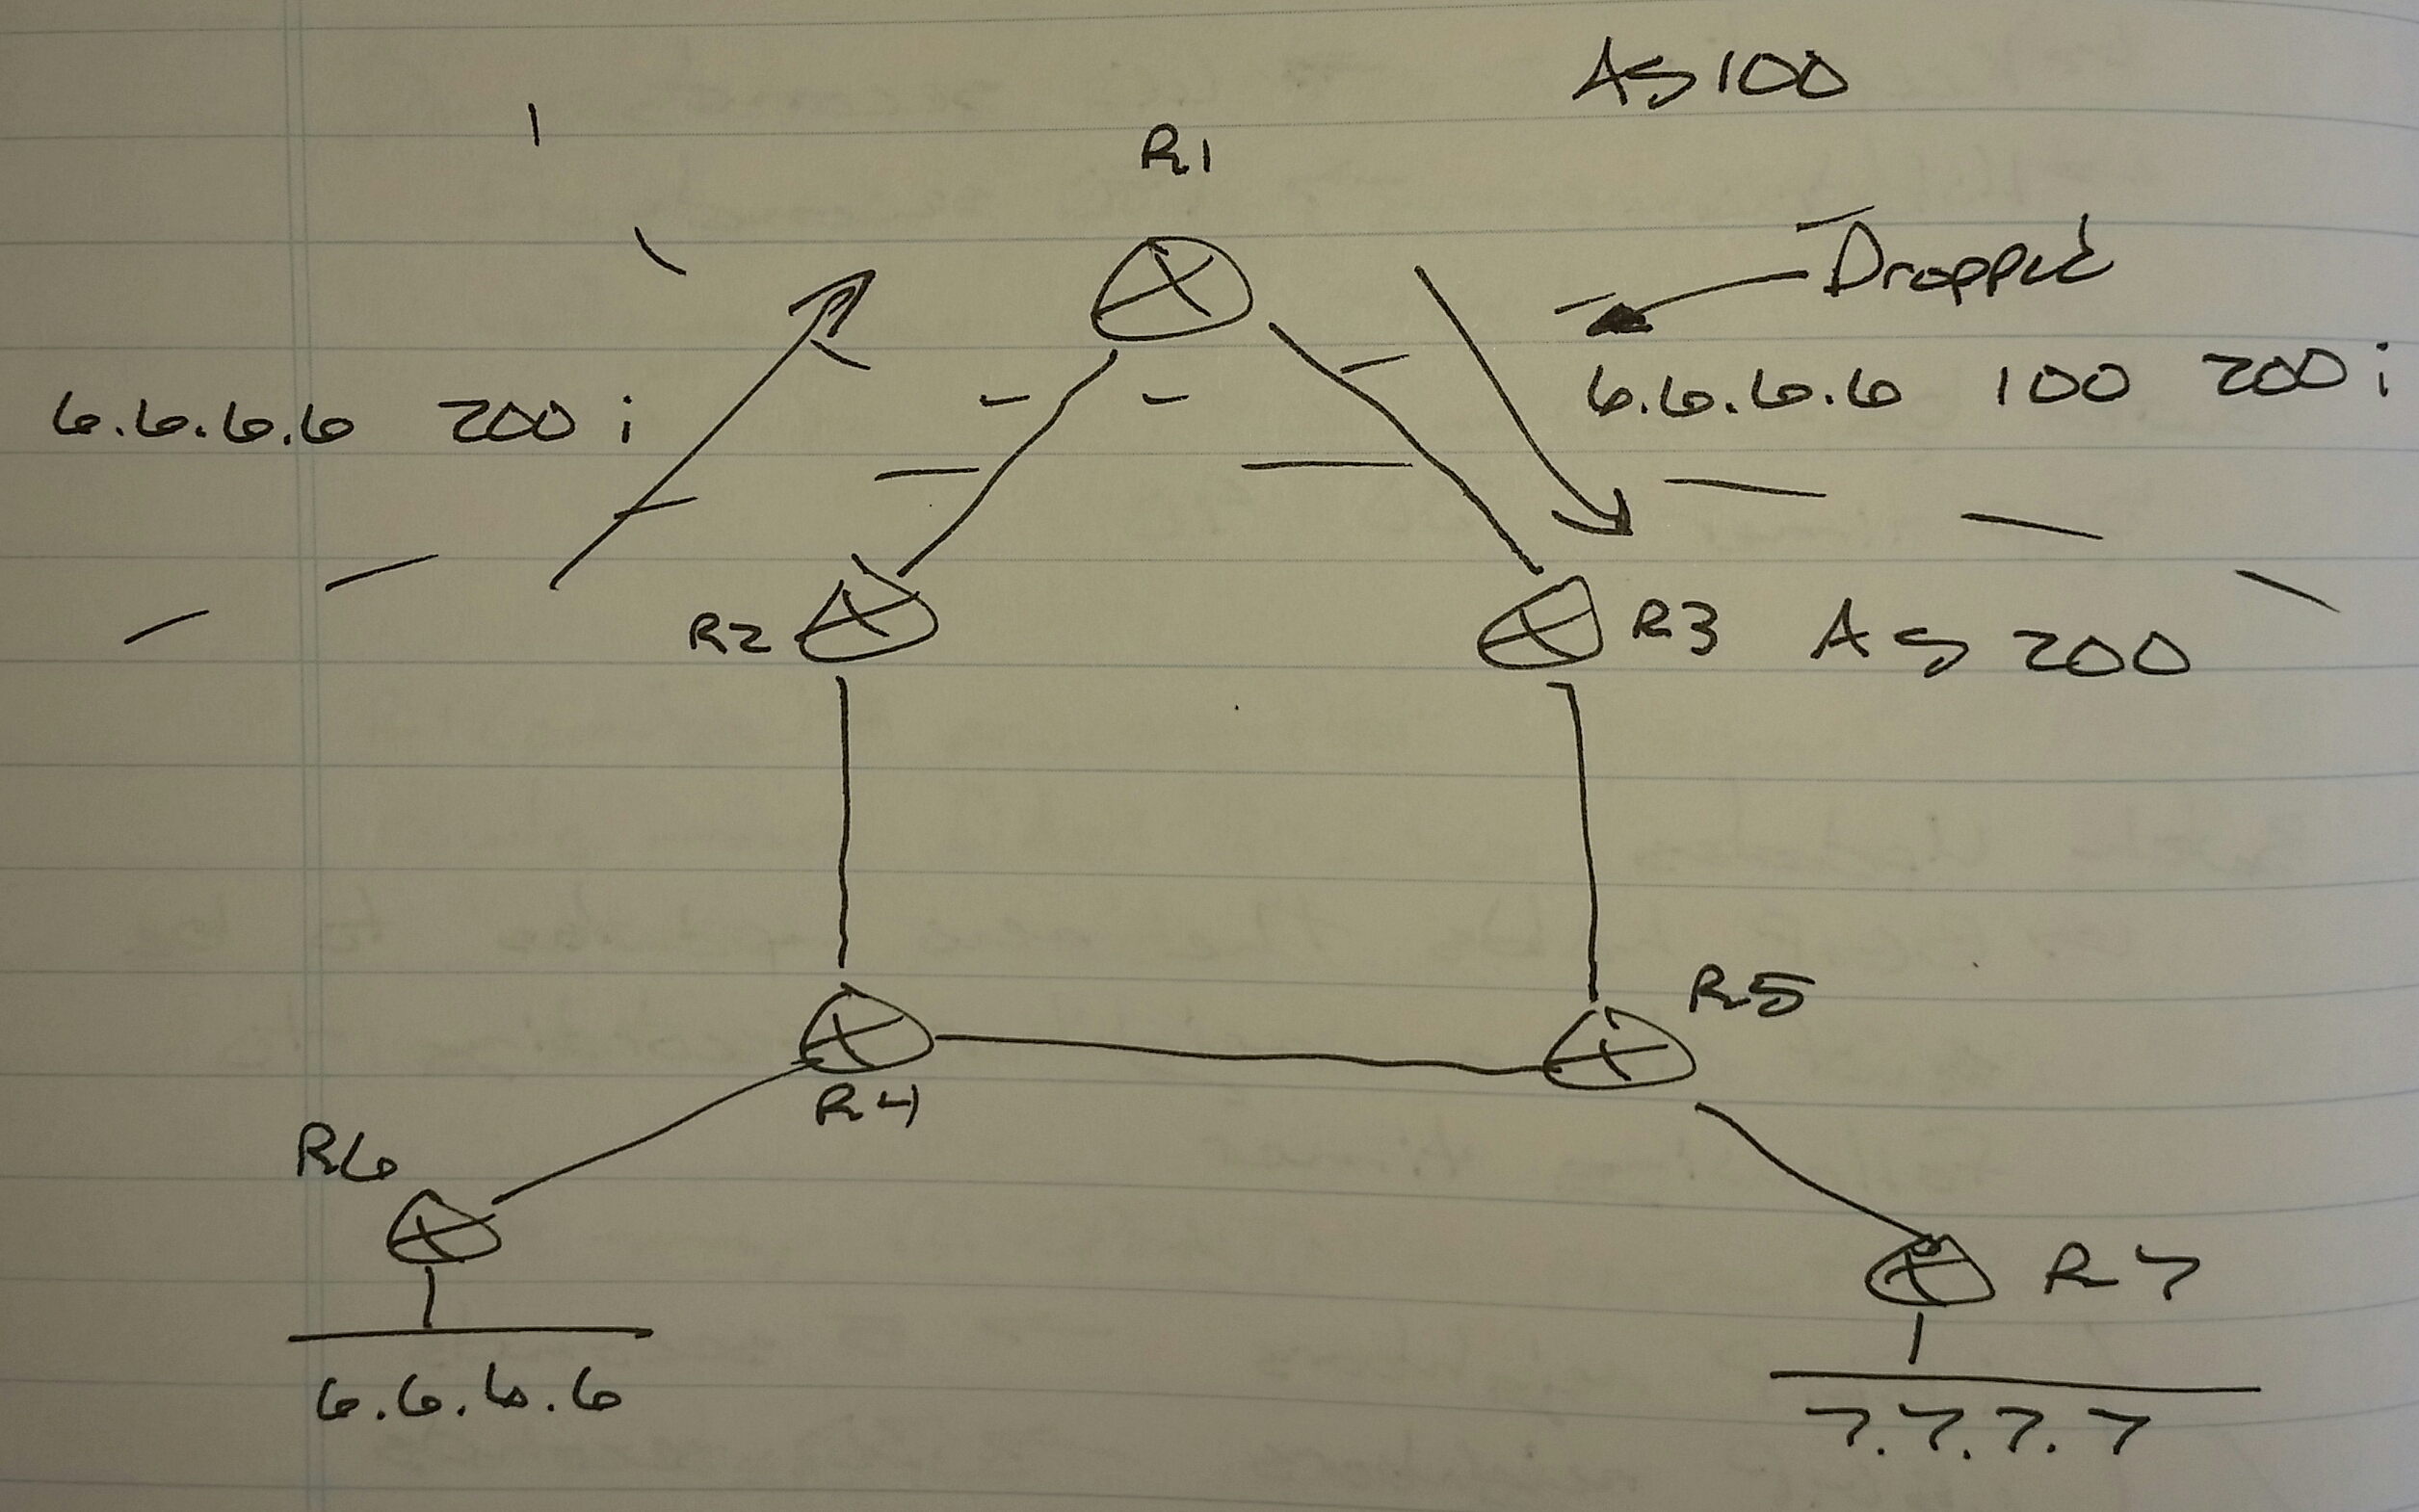 AS 100
R1
Dropped
6.6.6.6 200 i
6.6.6.6 100 200 i
R2
R3
AS 200
R5
R4
R6
R7
6.6.6.6
7.7.7.7